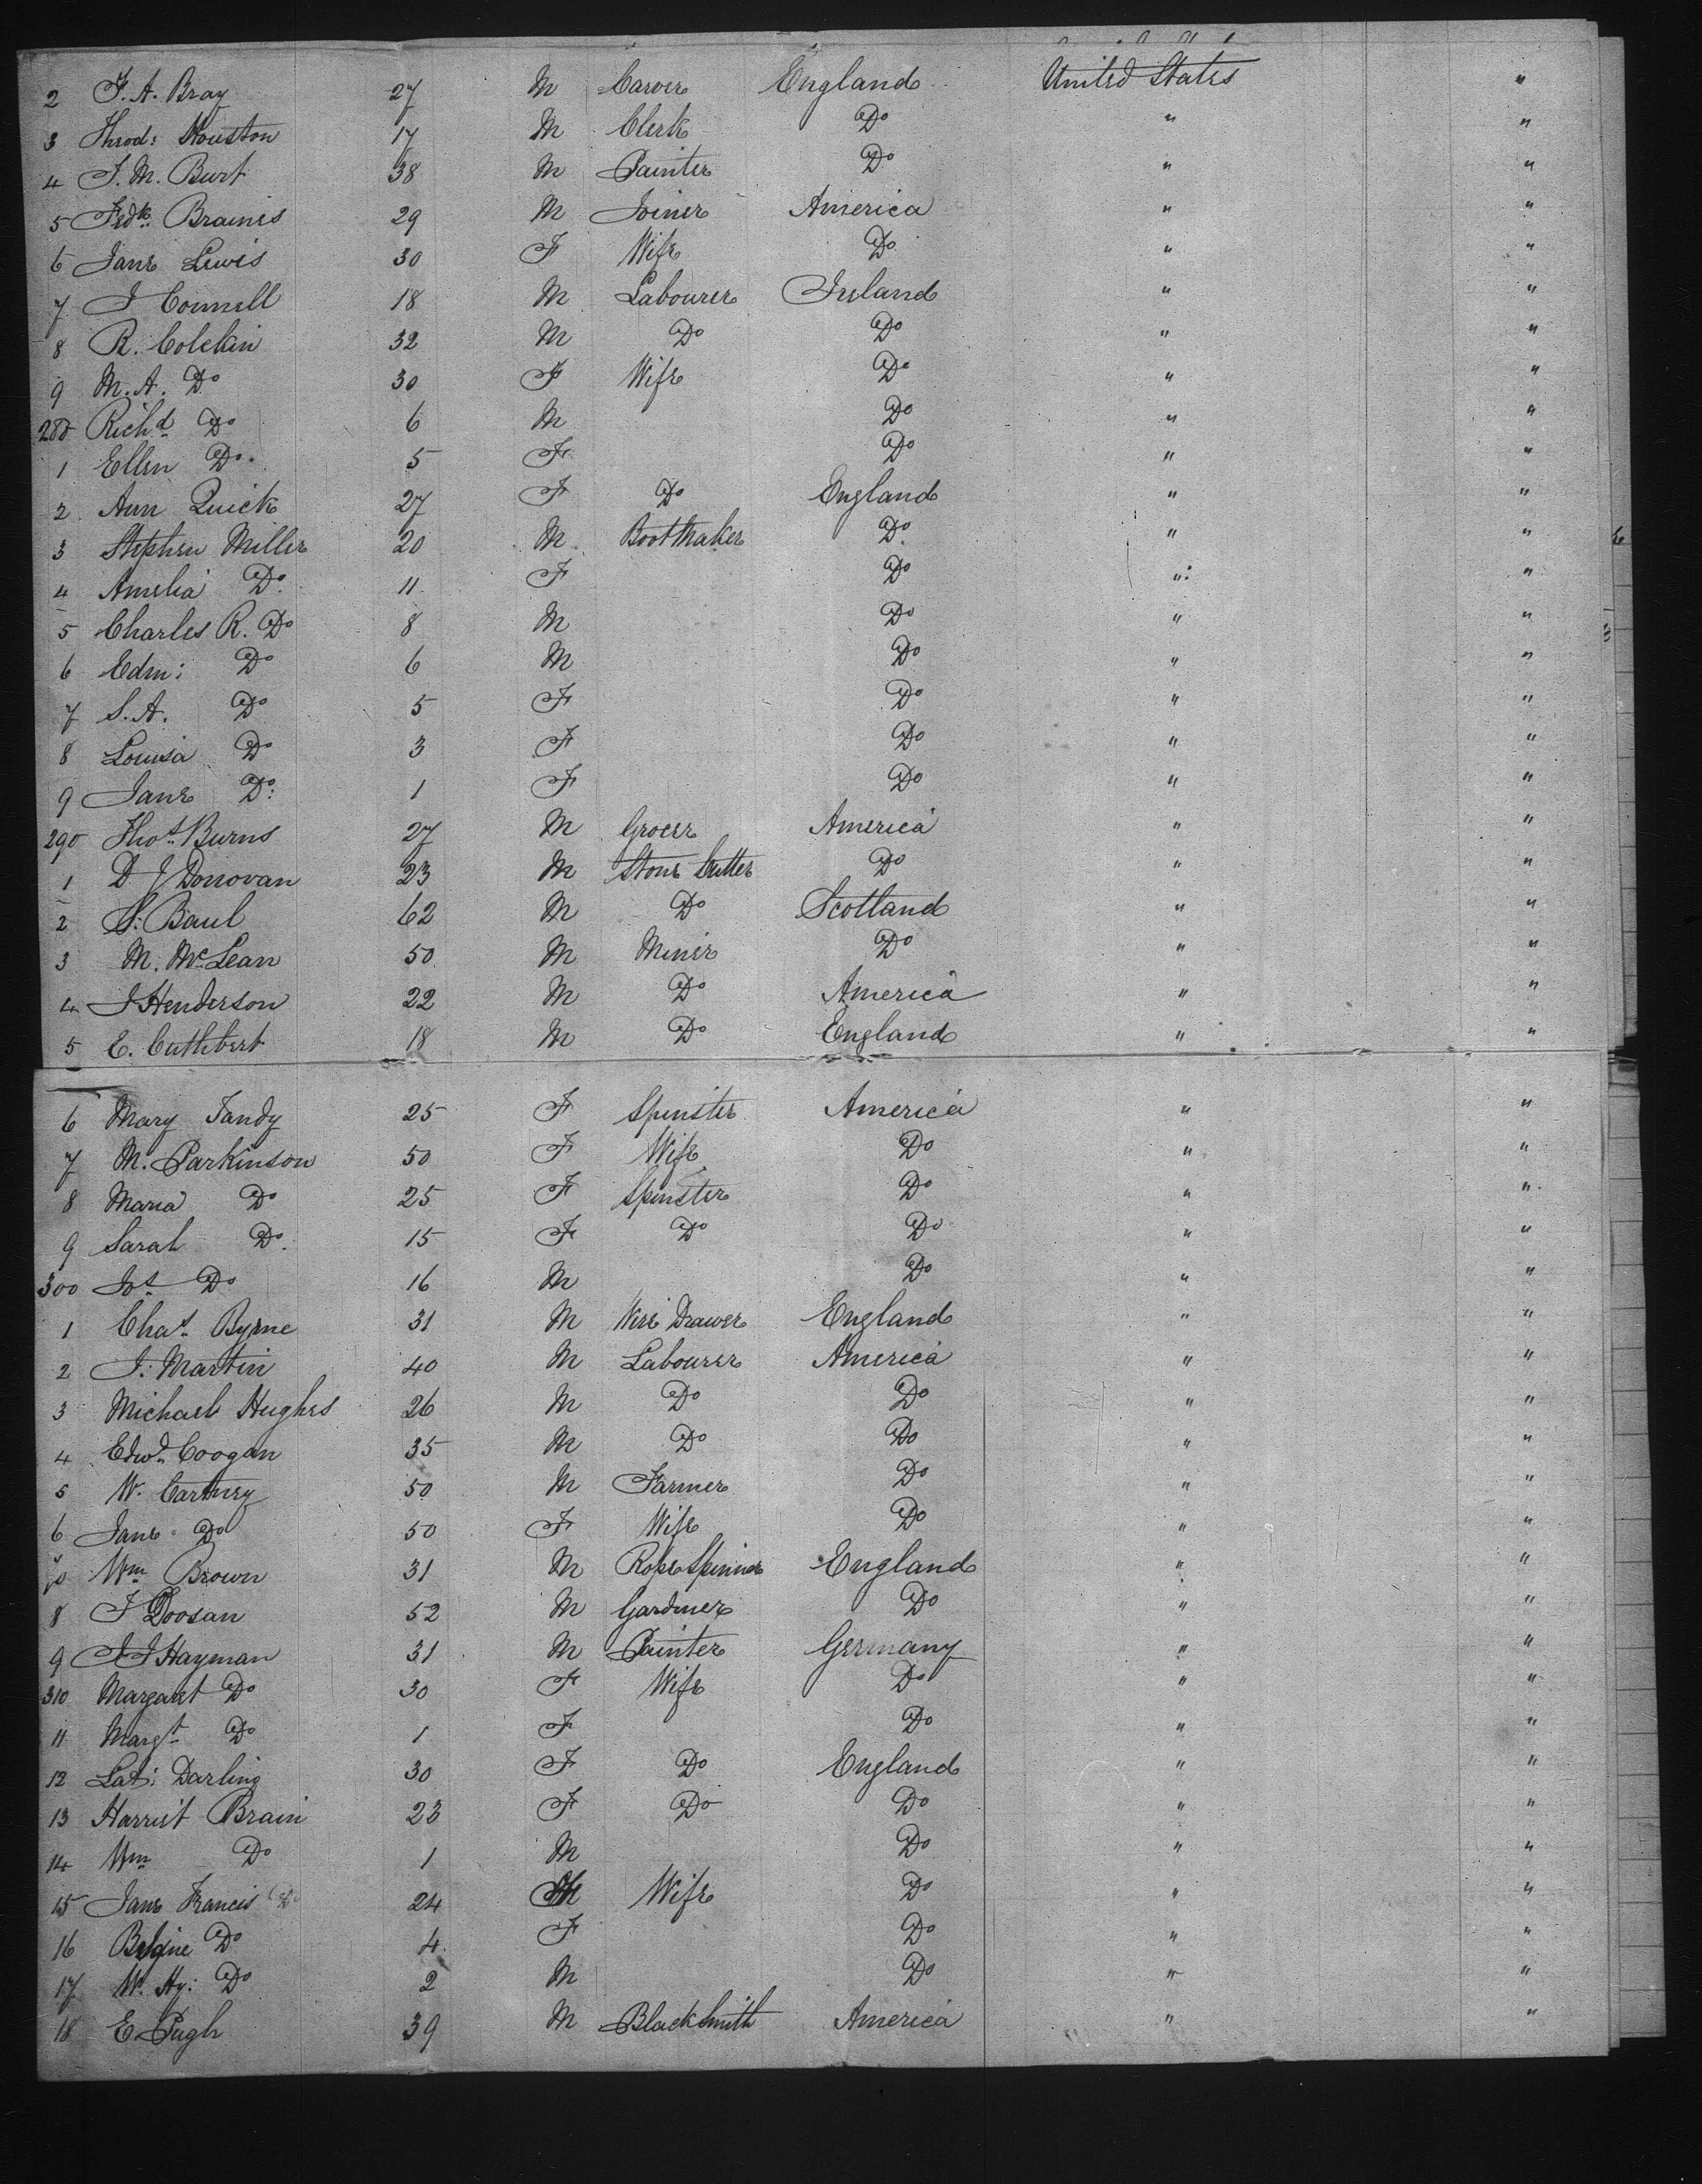 2 F. A. Bray 27 M Carver England United States "
3 Throd: Houston 17 M Clerk Do " "
4 J. M. Burt 38 M Painter Do " "
5 Fredk. Braines 29 M Joiner America " "
6 Jane Lewis 30 F Wife Do " "
7 J Connell 18 M Labourer Ireland " "
8 R. Colekin 32 M Do Do " "
9 M. A. Do 30 F Wife Do " "
280 Richd. Do 6 M Do " "
1 Ellen Do. 5 F Do " "
2 Ann Quick 27 F Do England " "
3 Stephen Miller 20 M Boot Maker Do. " "
4 Amelia Do. 11 F Do " "
5 Charles R. Do 8 M Do " "
6 Edm: Do 6 M Do " "
7 S. A. Do 5 F Do " "
8 Louisa Do 3 F Do " "
9 Jane Do: 1 F Do " "
290 Thos. Burns 27 M Grocer America " "
1 D J Donovan 23 M Stone Cutter Do " "
2 S: Baul 62 M Do Scotland " "
3 M. McLean 50 M Miner Do " "
4 J Henderson 22 M Do America " "
5 E. Cuthbert 18 M Do England " "
6 Mary Tandy 25 F Spinster America " "
7 M. Parkinson 50 F Wife Do " "
8 Maria Do 25 F Spinster Do " "
9 Sarah Do. 15 F Do Do " "
300 Jos. Do 16 M Do " "
1 Chas. Byrne 31 M Wire Drawer England " "
2 J: Martin 40 M Labourer America " "
3 Michael Hughes 26 M Do Do " "
4 Edwd. Coogan 35 M Do Do " "
5 W. Cartney 50 M Farmer Do " "
6 Jane Do 50 F Wife Do " "
7 Wm Brown 31 M Rope Spinner England " "
8 J Doosan 52 M Gardner Do " "
9 J J Hayman 31 M Painter Germany " "
310 Margaret Do 30 F Wife Do " "
11 Margt. Do 1 F Do " "
12 Lat: Darling 30 F Do England " "
13 Harriet Brain 23 F Do Do " "
14 Wm Do 1 M Do " "
15 Jane Francis 24 Wife Do " "
16 Do 4 F Do " "
17 W. Hy: Do 2 M Do " "
18 E Pugh 39 M Black Smith America " "